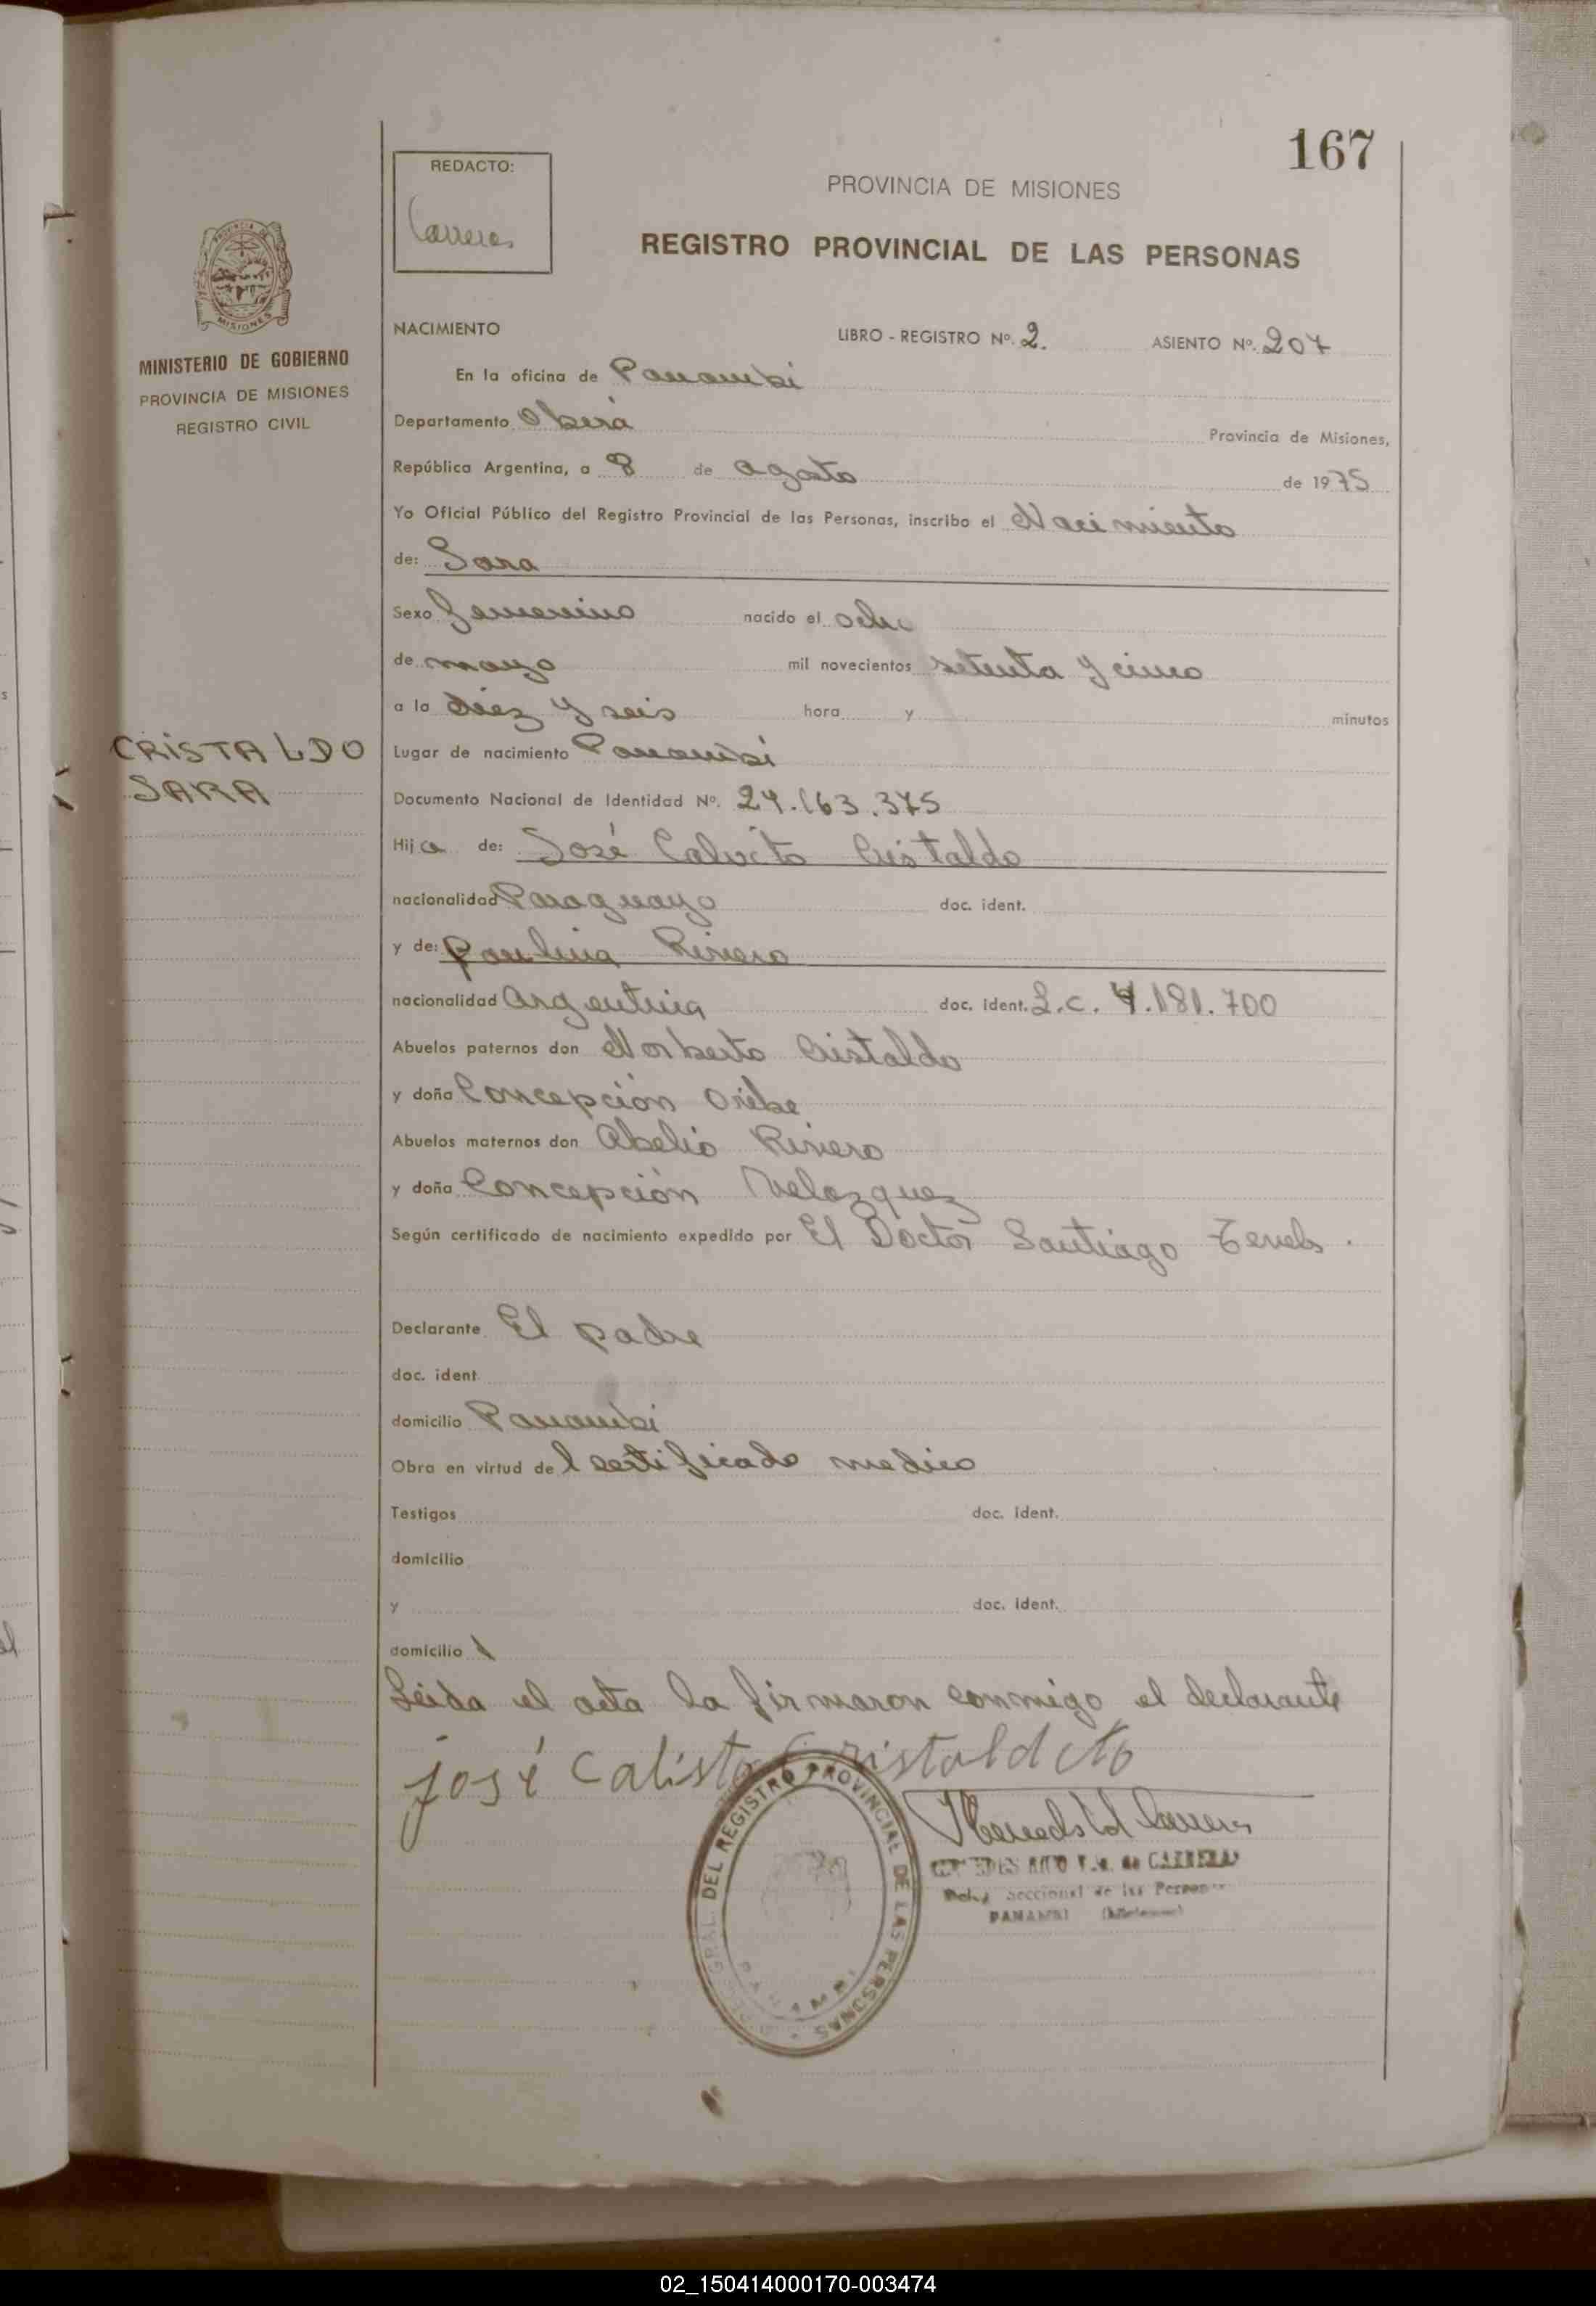 167
REDACTO:
Carreras
PROVINCIA DE MISIONES
REGISTRO PROVINCIAL DE LAS PERSONAS
MISIONES
MINISTERIO DE GOBIERNO
PROVINCIA DE MISIONES
REGISTRO CIVIL
NACIMIENTO LIBRO - REGISTRO Nº. 2. ASIENTO Nº. 207
En la oficina de Panambi
Departamento Oberá Provincia de Misiones,
República Argentina, a 8 de agosto de 1975
Yo Oficial Público del Registro Provincial de las Personas, inscribo el Nacimiento
de: Sara
Sexo Femenino nacido el ocho
de mayo mil novecientos setenta y cinco
a la diez y seis hora y minutos
CRISTALDO
SARA
Lugar de nacimiento Panambi
Documento Nacional de Identidad Nº. 24.163.375
Hija de: José Calixto Cristaldo
nacionalidad Paraguayo doc. ident.
y de: Paulina Rivero
nacionalidad Argentina doc. ident. L.C. 4.181.700
Abuelos paternos don Norberto Cristaldo
y doña Concepción Oribe
Abuelos maternos don Abelio Rivero
y doña Concepción Velazquez
Según certificado de nacimiento expedido por El Doctor Santiago
Declarante El padre
doc. ident
domicilio Panambi
Obra en virtud del certificado medico
Testigos doc. ident.
domicilio
y doc. ident.
domicilio
Leida el acta la firmaron conmigo el declarante
José Calisto Cristaldo
DEL REGISTRO PROVINCIAL DE LAS PERSONAS
PANAMBI
de CARRERAS
Seccional de las Personas
PANAMBI (Misiones)
02_150414000170-003474